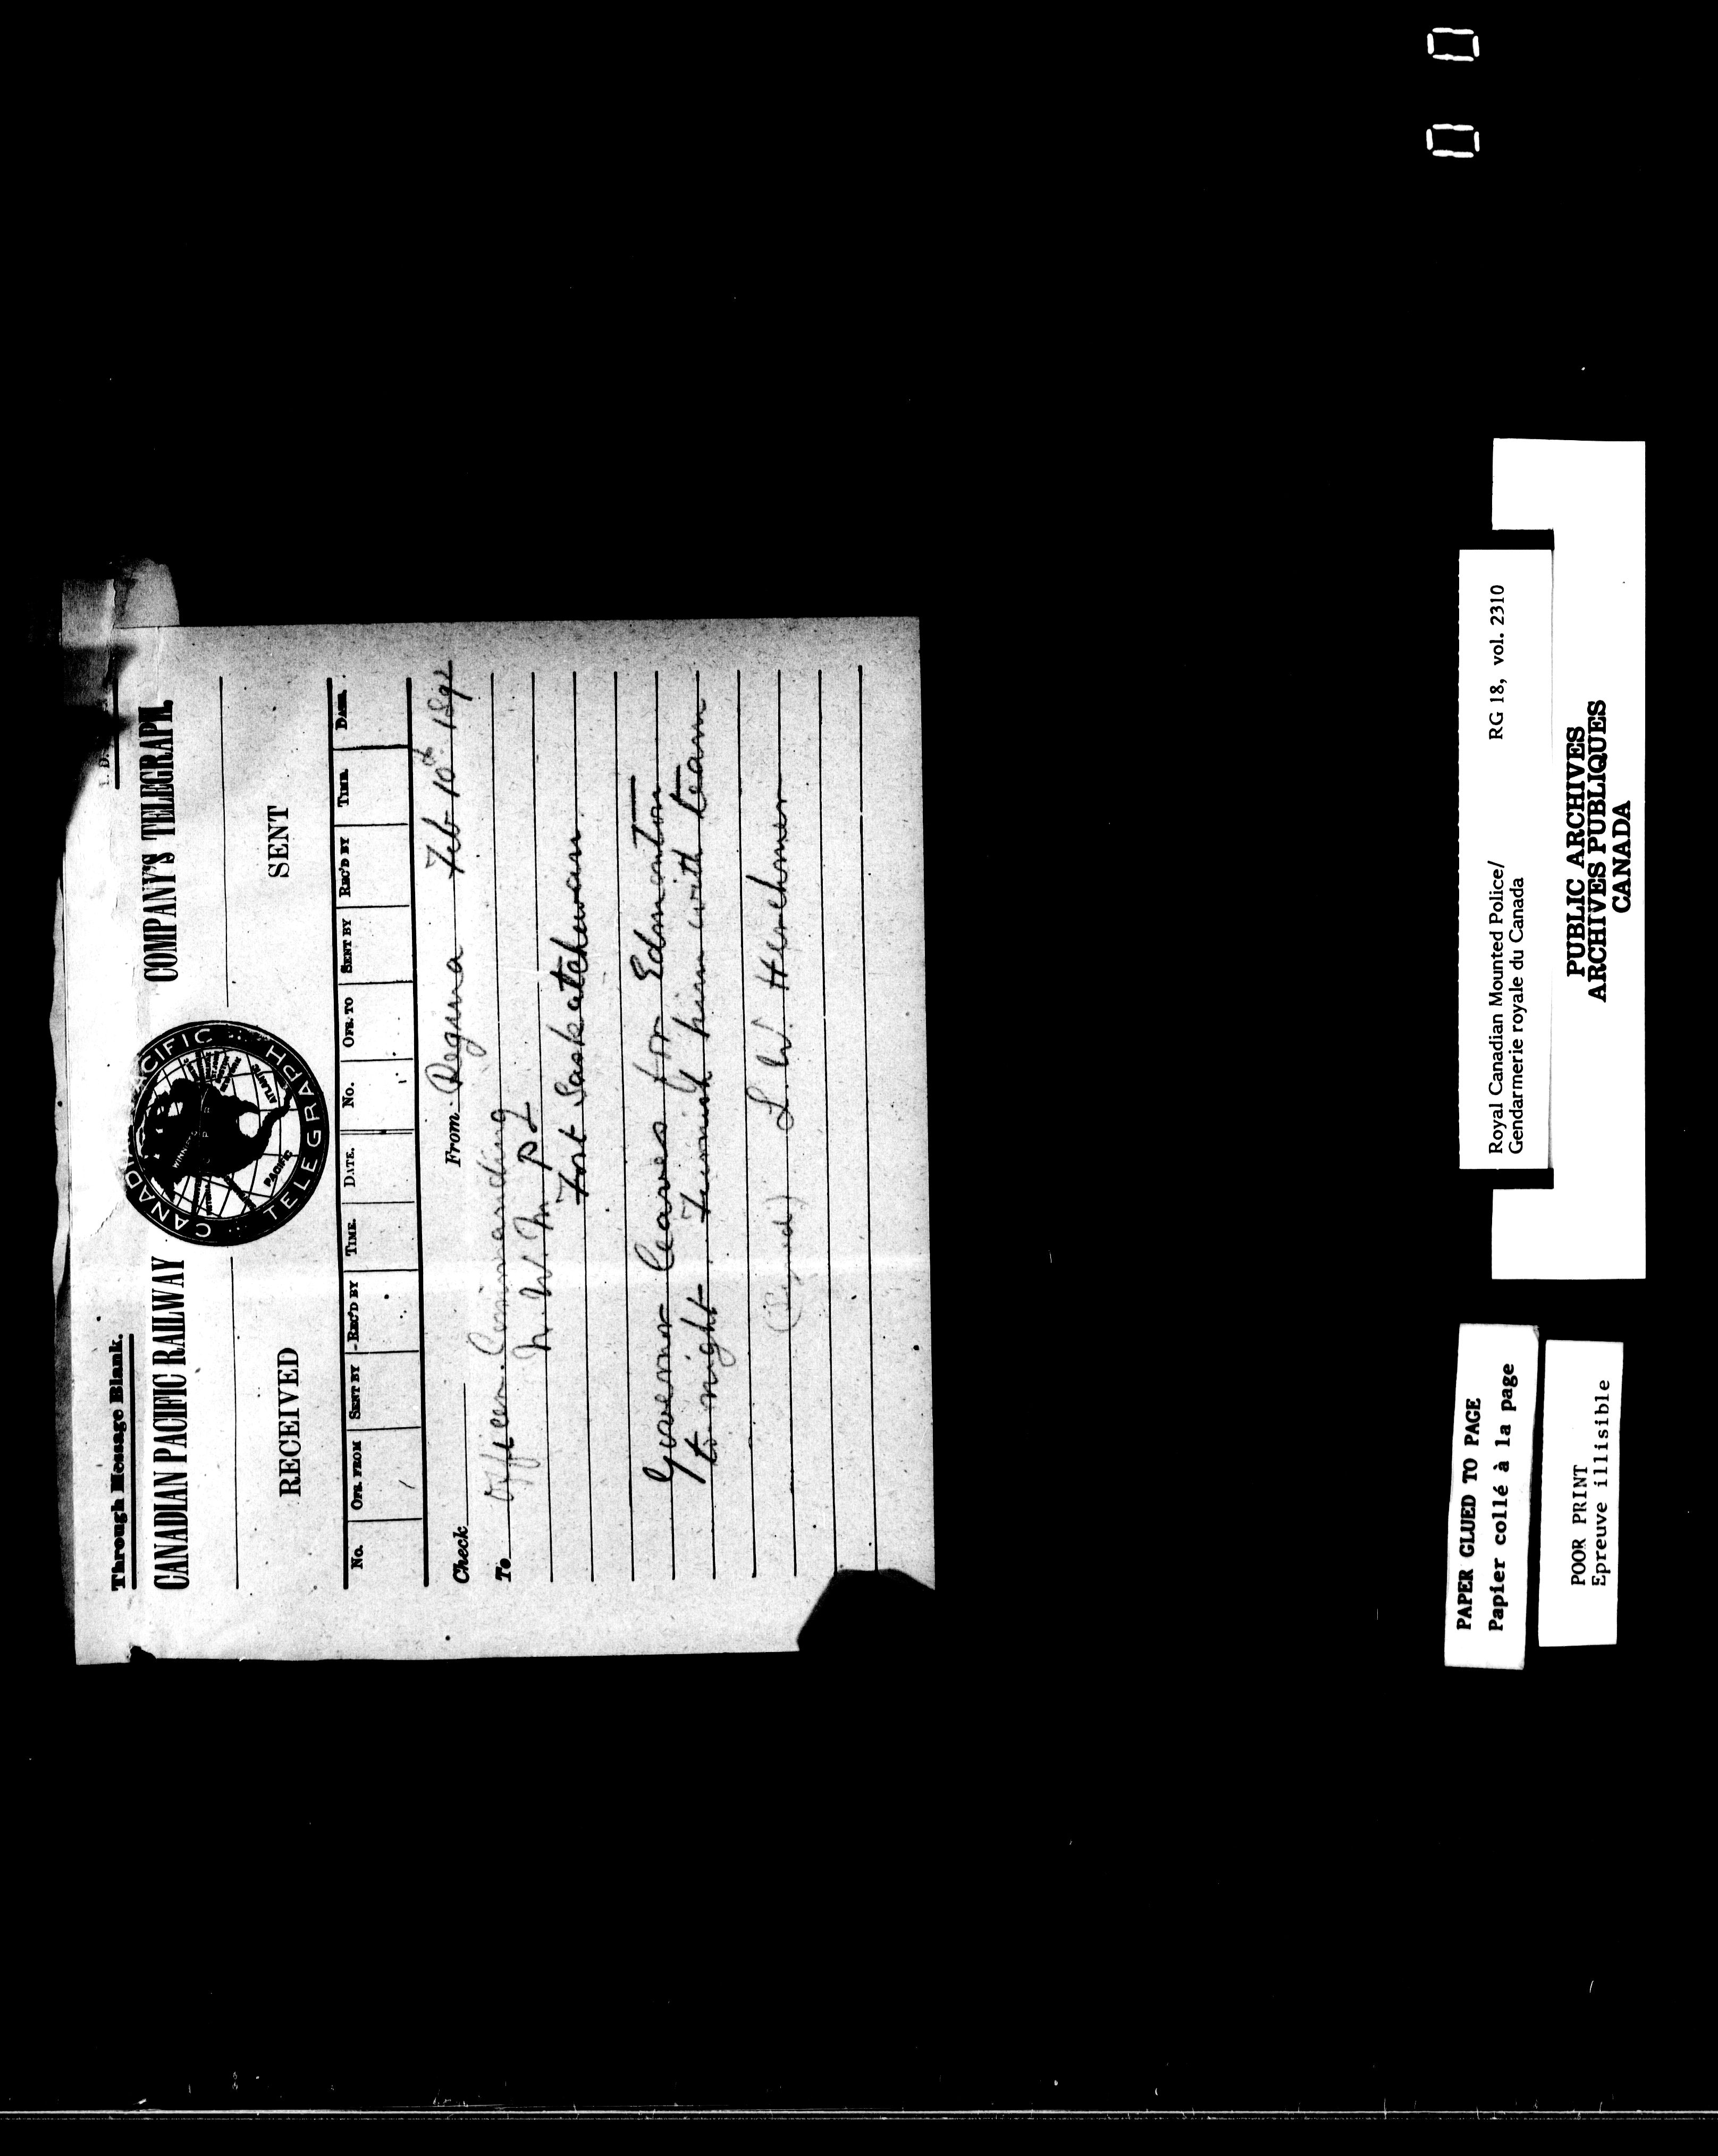 Through Message Blank.
CANADIAN PACIFIC RAILWAY COMPANY'S TELEGRAPH.
CANADIAN PACIFIC
TELEGRAPH
PACIFIC
ATLANTIC
RECEIVED SENT
No. OFR. FROM SENT BY REC'D BY TIME. DATE. No. OFR. TO SENT BY REC'D BY TIME. DATE.
Check From Regina Feb 10th 1892
To Officer Commanding
N. W. M. P.
Fort Saskatchewan
Governor leaves for Edmonton
to night Furnish him with team
(Signed) L. W. Herchmer
Royal Canadian Mounted Police/ RG 18, vol. 2310
Gendarmerie royale du Canada
PUBLIC ARCHIVES
ARCHIVES PUBLIQUES
CANADA
PAPER GLUED TO PAGE
Papier collé à la page
POOR PRINT
Epreuve illisible
0 0